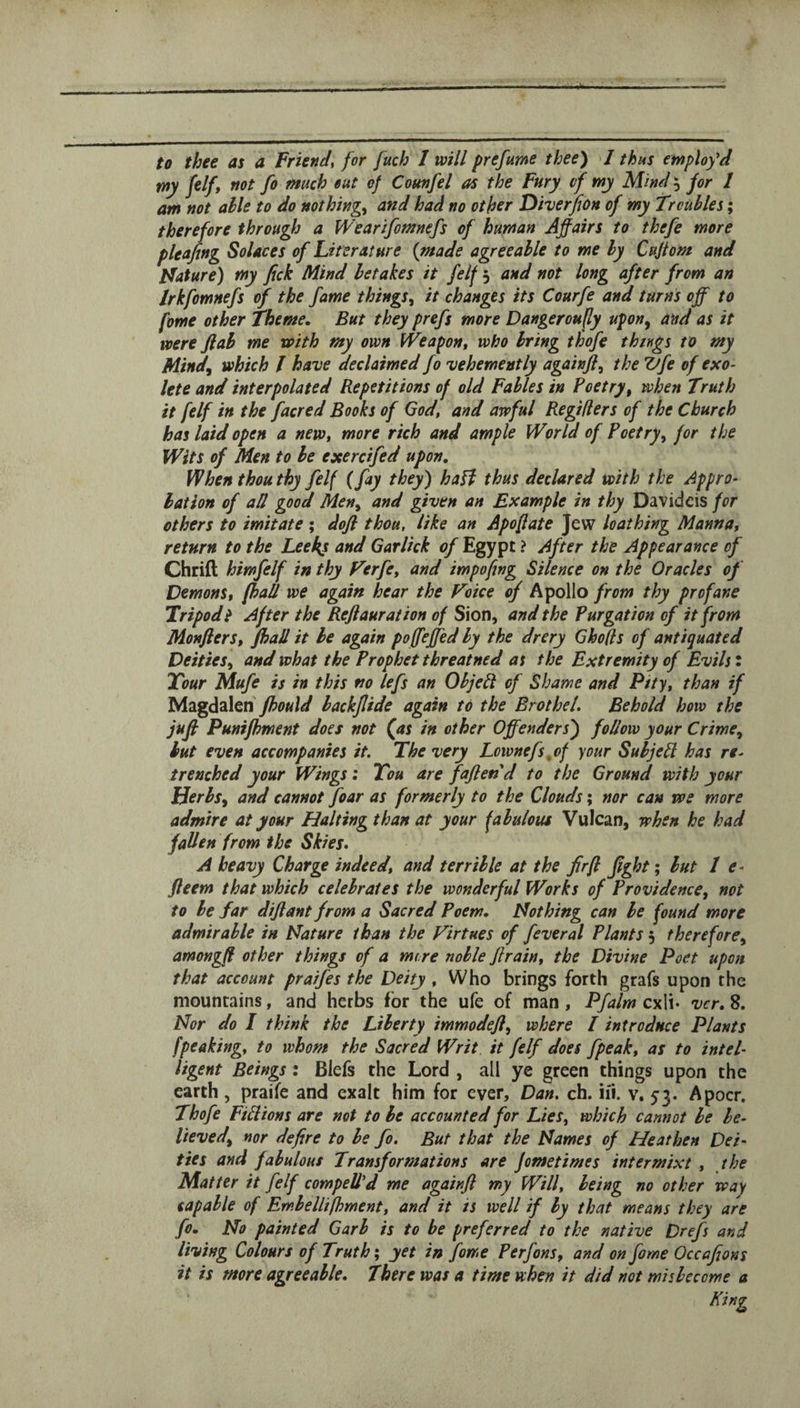 to thee as a Friend, for ſuch I will preſume thee) I thus employ'd
my ſelf, not ſo much out of Counſel as the Fury of my Mind; for I
am not able to do nothing, and had no other Diverſion of my Troubles;
therefore through a Weariſomneſs of human Affairs to theſe more
pleaſing Solaces of Literature (made agreeable to me by Cuſtom and
Nature) my ſick Mind betakes it ſelf; and not long after from an
Irkſomneſs of the ſame things, it changes its Courſe and turns off to
ſome other Theme. But they preſs more Dangerouſly upon, and as it
were ſtab me with my own Weapon, who bring thoſe things to my
Mind, which I have declaimed ſo vehemently againſt, the Uſe of exo-
lete and interpolated Repetitions of old Fables in Poetry, when Truth
it ſelf in the ſacred Books of God, and awful Regiſters of the Church
has laid open a new, more rich and ample World of Poetry, for the
Wits of Men to be exerciſed upon.
When thou thy ſelf (ſay they) haſt thus declared with the Appro-
bation of all good Men, and given an Example in thy Davideis for
others to imitate; doſt thou, like an Apoſtate Jew loathing Manna,
return to the Leeks and Garlick of Egypt? After the Appearance of
Chriſt himſelf in thy Verſe, and impoſing Silence on the Oracles of
Demons, ſhall we again hear the Voice of Apollo from thy profane
Tripod? After the Reſtauration of Sion, and the Purgation of it from
Monſters, ſhall it be again poſſeſſed by the drery Ghoſts of antiquated
Deities, and what the Prophet threatned as the Extremity of Evils:
Your Muſe is in this no leſs an Object of Shame and Pity, than if
Magdalen ſhould backſlide again to the Brothel. Behold how the
juſt Puniſhment does not (as in other Offenders) follow your Crime,
but even accompanies it. The very Lowneſs of your Subject has re-
trenched your Wings: You are faſten'd to the Ground with your
Herbs, and cannot ſoar as formerly to the Clouds; nor can we more
admire at your Halting than at your fabulous Vulcan, when he had
fallen from the Skies.
A heavy Charge indeed, and terrible at the firſt ſight; but I e-
ſteem that which celebrates the wonderful Works of Providence, not
to be far diſtant from a Sacred Poem. Nothing can be found more
admirable in Nature than the Virtues of ſeveral Plants; therefore,
amongſt other things of a more noble ſtrain, the Divine Poet upon
that account praiſes the Deity, Who brings forth graſs upon the
mountains, and herbs for the uſe of man, Pſalm cxli. ver. 8.
Nor do I think the Liberty immodeſt, where I introduce Plants
ſpeaking, to whom the Sacred Writ it ſelf does ſpeak, as to intel-
ligent Beings: Bleſs the Lord, all ye green things upon the
earth, praiſe and exalt him for ever, Dan. ch. iii. v. 53. Apocr.
Thoſe Fictions are not to be accounted for Lies, which cannot be be-
lieved, nor deſire to be ſo. But that the Names of Heathen Dei-
ties and fabulous Transformations are ſometimes intermixt, the
Matter it ſelf compell'd me againſt my Will, being no other way
capable of Embelliſhment, and it is well if by that means they are
ſo. No painted Garb is to be preferred to the native Dreſs and
living Colours of Truth; yet in ſome Perſons, and on ſome Occaſions
it is more agreeable. There was a time when it did not misbecome a
King